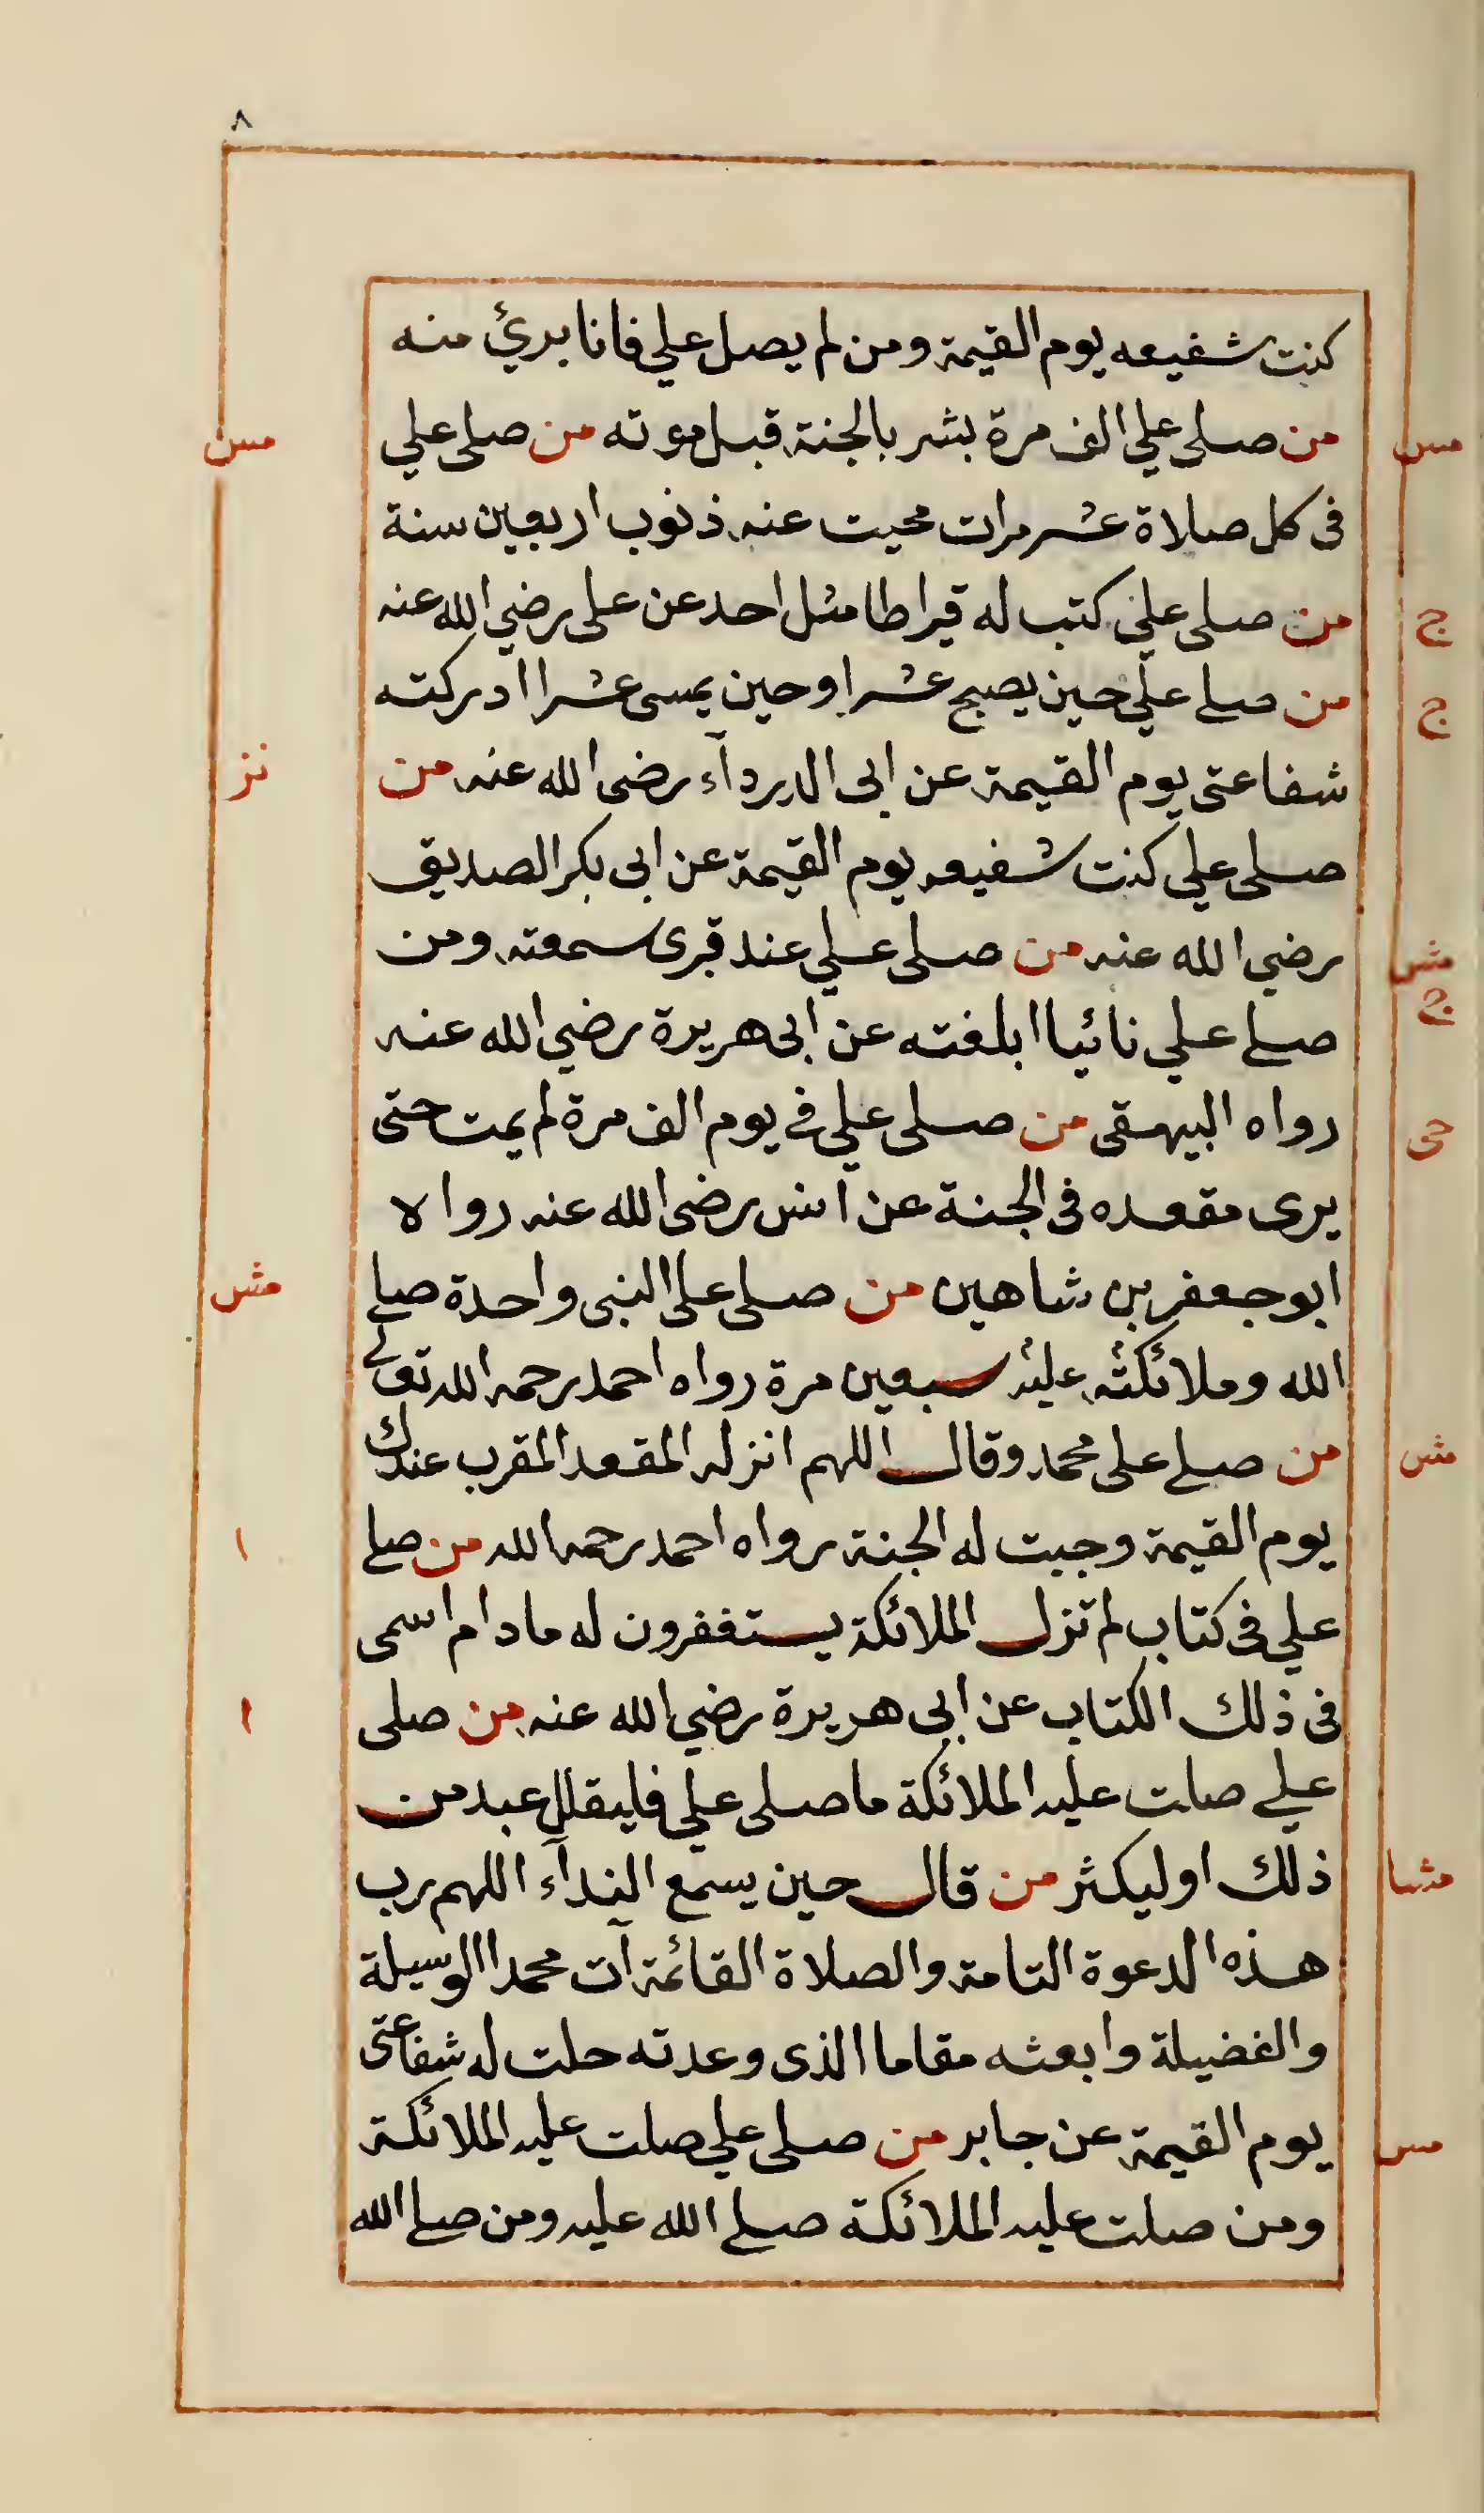 ٨
كنت شفيعه يوم القيمة ومن لم يصل علي فانا بريئ منه
مس من صلى علي الف مرة بشر بالجنة قبل موته من صلى علي مس
فى كل صلاة عشر مرات محيت عنه ذنوب اربعين سنة
ج من صلى علي كتب له قيراطا مثل احد عن على رضي الله عنه
ج من صلى علي حين يصبح عشرا وحين يمسى عشرا ادركته
شفاعتى يوم القيمة عن ابى الدرداۤء رضى الله عنه من نز
صلى علي كنت شفيعه يوم القيمة عن ابى بكر الصديق
مش رضي الله عنه من صلى علي عند قبرى سمعته ومن
ج صلى علي نائيا ابلغته عن ابى هريرة رضي الله عنه
حى رواه البيهقى من صلى علي فى يوم الف مرة لم يمت حتى
يرى مقعده فى الجنة عن انس رضى الله عنه رواه
ابو جعفر بن شاهين من صلى على النبى واحدة صلى مش
الله وملائكته عليه سبعين مرة رواه احمد رحمه الله تعالى
مش من صلى على محمد وقال اللهم انزله المقعد المقرب عندك
يوم القيمة وجبت له الجنة رواه احمد رحمه الله من صلى ا
علي فى كتاب لم تزل الملائكة يستغفرون له مادام اسمى
فى ذلك الكتاب عن ابى هريرة رضي الله عنه من صلى ا
علي صلت عليه الملائكة ما صلى علي فليقلل عبد من
مشا ذلك او ليكثر من قال حين يسمع النداۤء اللهم رب
هذه الدعوة التامة والصلاة القائمة آت محمدا الوسيلة
والفضيلة وابعثه مقاما الذى وعدته حلت له شفاعتى
مس يوم القيمة عن جابر من صلى علي صلت عليه الملائكة
ومن صلت عليه الملائكة صلى الله عليه ومن صلى الله